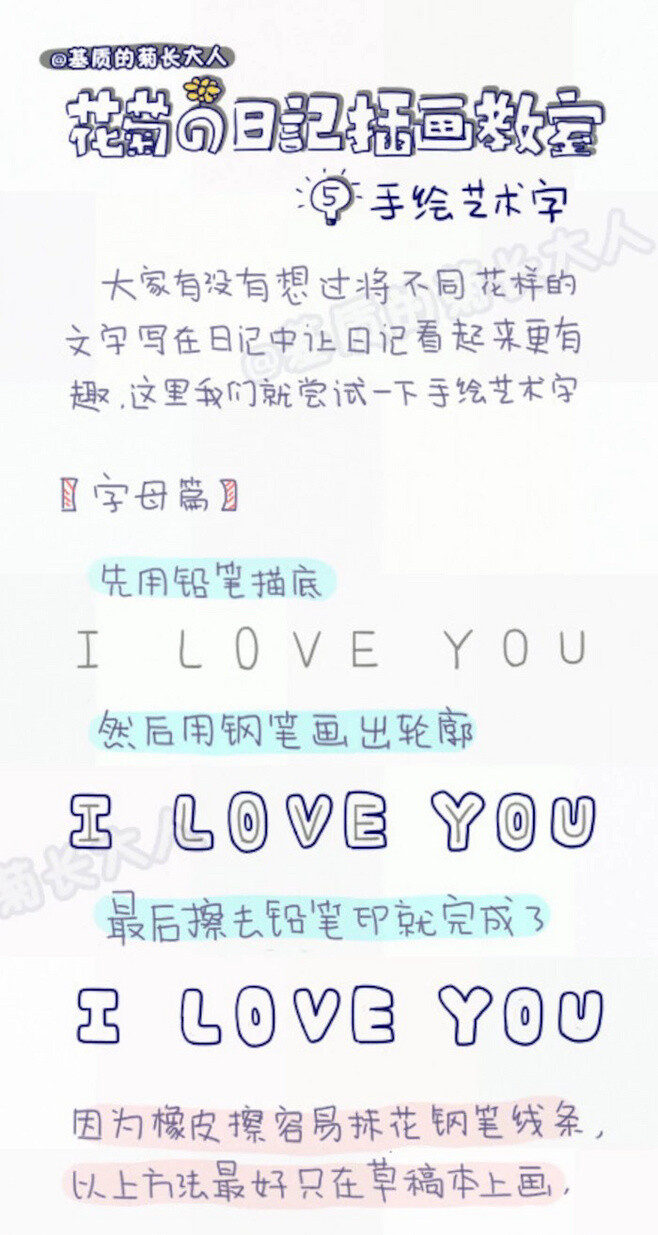 @基质的菊长大人
花菊の日記插画教室
5 手绘艺术字
大家有没有想过将不同花样的
文字写在日记中让日记看起来更有
趣.这里我们就尝试一下手绘艺术字
@基质的菊长大人
【字母篇】
先用铅笔描底
I LOVE YOU
然后用钢笔画出轮廓
I LOVE YOU
菊长大人
最后擦去铅笔印就完成了
I LOVE YOU
因为橡皮擦容易抹花钢笔线条,
以上方法最好只在草稿本上画,